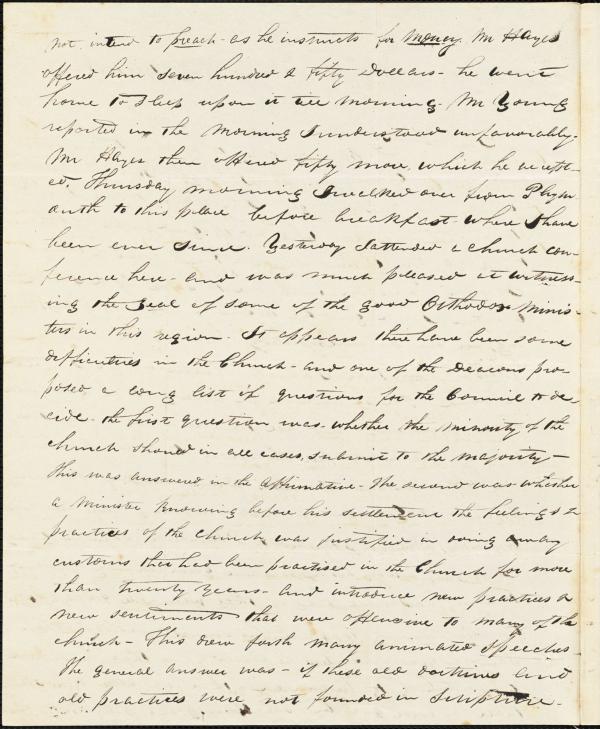 not intend to preach - as he instructs for Money. Mr Hayes
offered him seven hundred & fifty dollars - he went
home to sleep upon it till morning. Mr Young
reported in the morning I understood unfavorably.
Mr Hayes then offered fifty more, which he accept-
ed. Thursday morning I walked over from Plym
outh to this place before breakfast - where I have
been ever since. Yesterday I attended a church con-
ference here - and was much pleased at witness-
ing the zeal of some of the good Orthodox Minis-
ters in this region. It appears there have been some
difficulties in the Church - and one of the Deacons pro-
posed a long list of questions for the Council to de-
cide. the first question was - whether the minority of the
church should in all cases, submit to the majority -
this was answered in the affirmative - The second was whether
a Minister knowing before his settlement the feelings &
practices of the church was justified in doing away
customs that had been practised in the Church for more
than twenty years - and introduce new practices or
new sentiments that were offensive to many of the
church - This drew forth many animated speeches
The general answer was - if these old doctrines and
old practices were not founded in Scripture -